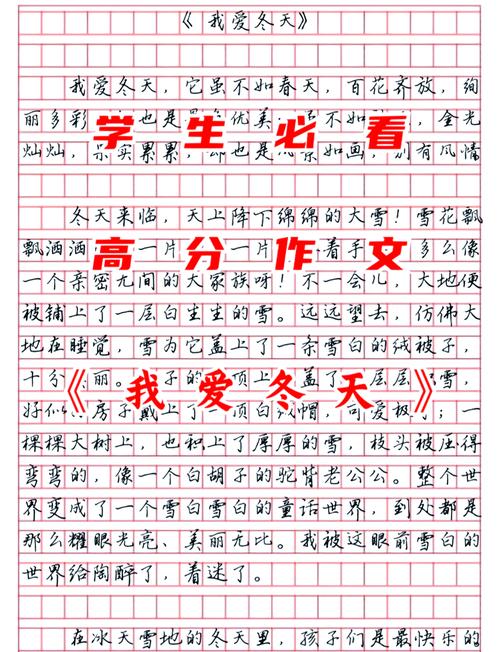 《我爱冬天》
我爱冬天，它虽不如春天，百花齐放，绚
丽多彩 也是 优美 不如 金光
学生必看
灿灿，果实累累， 也是 如画，别有风情
冬天来临，天上降下绵绵的大雪！雪花飘
飘洒洒 一片 一片 着手 多么像
高分作文
一个亲密无间的大家族呀！不一会儿，大地便
被铺上了一层白生生的雪。远远望去，仿佛大
地在睡觉，雪为它盖上了一条雪白的绒被子，
十分 丽。 子的 顶上 盖了 层层 雪，
《我爱冬天》
好似 房子戴上了一顶白 帽，可爱极了；一
棵棵大树上，也积上了厚厚的雪，枝头被压得
弯弯的，像一个白胡子的驼背老公公。整个世
界变成了一个雪白雪白的童话世界，到处都是
那么耀眼光亮、美丽无比。我被这眼前雪白的
世界给陶醉了，着迷了。
在冰天雪地的冬天里，孩子们是最快乐的